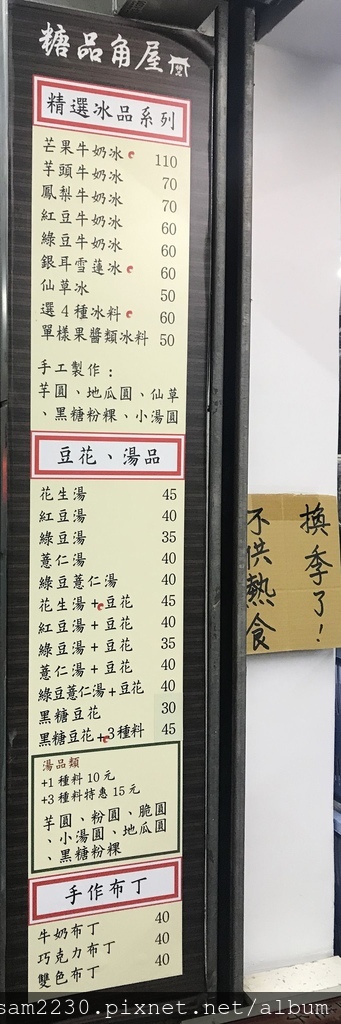 糖品角屋
精選冰品系列
芒果牛奶冰 110
芋頭牛奶冰 70
鳳梨牛奶冰 70
紅豆牛奶冰 60
綠豆牛奶冰 60
銀耳雪蓮冰 60
仙草冰 50
選4種冰料 60
單樣果醬類冰料 50
手工製作：
芋圓、地瓜圓、仙草
、黑糖粉粿、小湯圓
豆花、湯品
花生湯 45
紅豆湯 40
綠豆湯 35
薏仁湯 40
綠豆薏仁湯 40
花生湯+豆花 45
紅豆湯+豆花 40
綠豆湯+豆花 35
薏仁湯+豆花 40
綠豆薏仁湯+豆花 40
黑糖豆花 30
黑糖豆花+3種料 45
湯品類
+1種料10元
+3種料特惠15元
芋圓、粉圓、脆圓
、小湯圓、地瓜圓
、黑糖粉粿
手作布丁
牛奶布丁 40
巧克力布丁 40
雙色布丁 40
換季了！
不供熱食
sam2230.pixnet.net/album